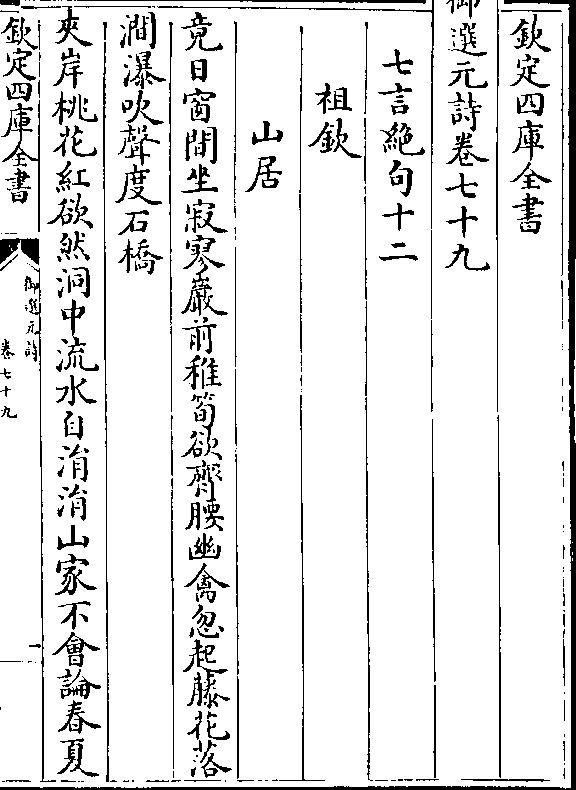 欽定四庫全書
御選元詩卷七十九
七言絶句十二
祖欽
山居
竟日窗間坐寂寥巖前稚筍欲齊腰幽禽忽起藤花落
澗瀑吹聲度石橋
夾岸桃花紅欲然洞中流水自涓涓山家不會論春夏
欽定四庫全書
御選元詩
卷七十九
一